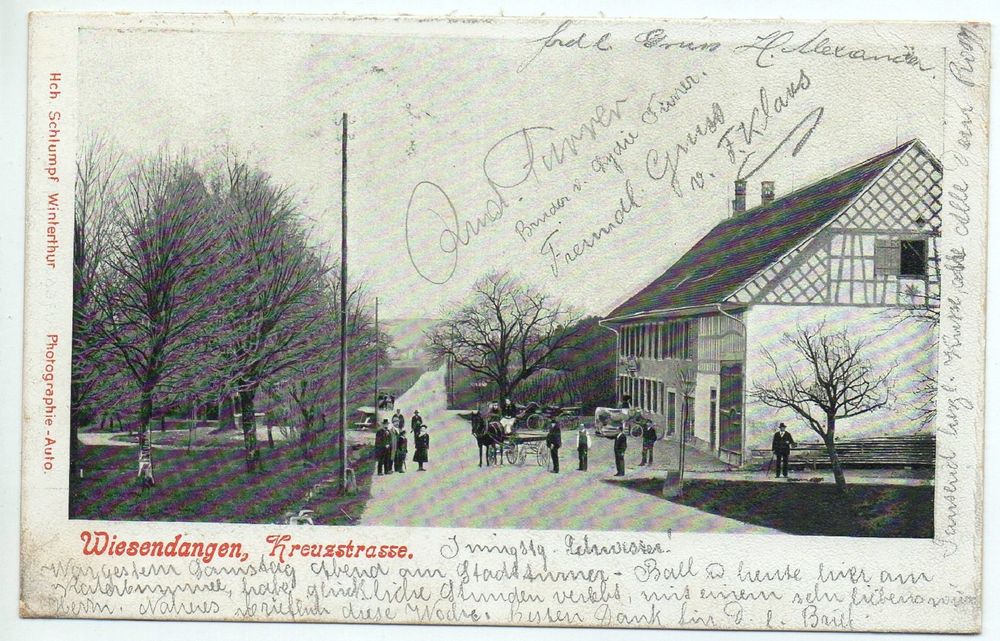 frdl. Gruss H. Alexander.
Rud. Furrer
Bruder v. Lydie Furrer.
Freundl. Gruss
v. F. Klaus
Hch. Schlumpf Winterthur Photographie-Auto.
Tausend herzl. Küsse, alle
Wiesendangen, Kreuzstrasse.
Innigstg. Schwester!
War gestern Samstag Abend am Stadtturner-Ball u heute hier am
Katerbummel, habe glückliche Stunden verlebt, mit einem sehr lieben
Herrn. Näheres brieflich diese Woche. Besten Dank für D. l. Brief.